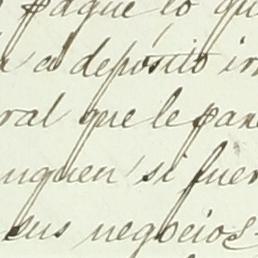 pague lo qu
a el deposito in
ral que le pare
nquen si fuer
sus negocios